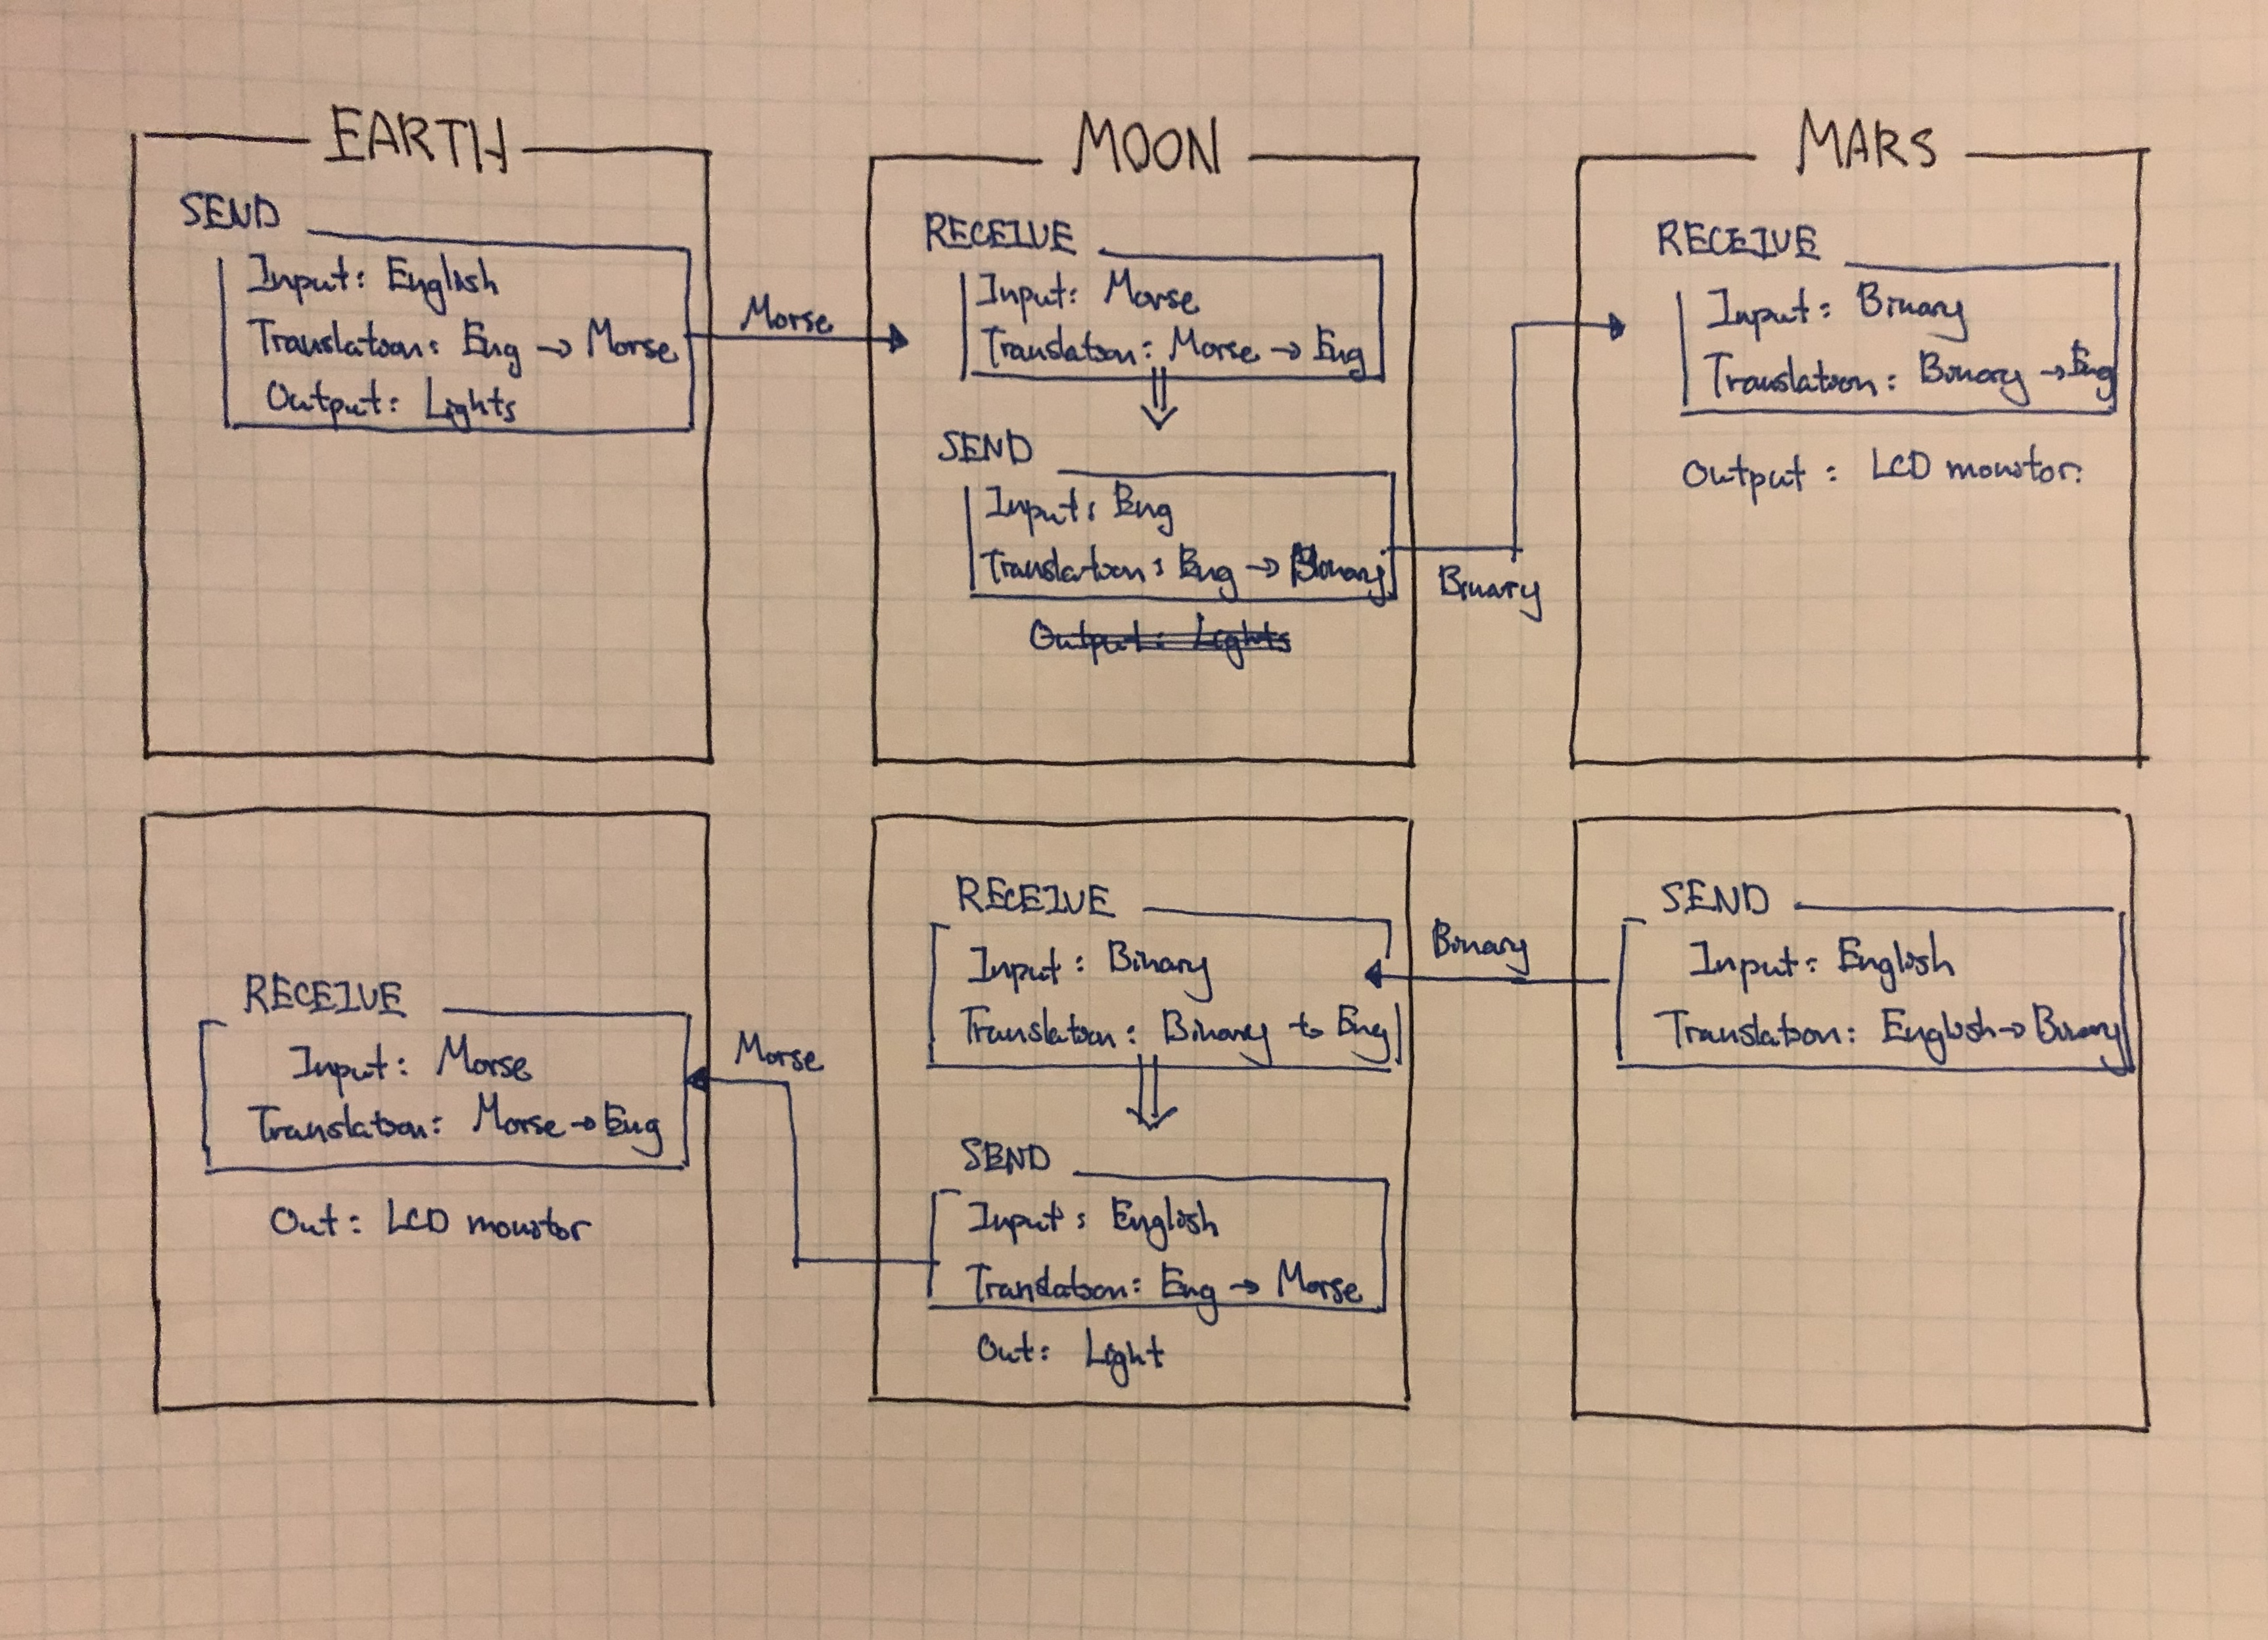 EARTH
SEND
Input: English
Translation: Eng → Morse
Output: Lights
Morse
MOON
RECEIVE
Input: Morse
Translation: Morse → Eng
SEND
Input: Eng
Translation: Eng → Binary
Output: Lights
Binary
MARS
RECEIVE
Input: Binary
Translation: Binary → Eng
Output: LCD monitor.
RECEIVE
Input: Morse
Translation: Morse → Eng
Out: LCD monitor
Morse
RECEIVE
Input: Binary
Translation: Binary to Eng
SEND
Input: English
Translation: Eng → Morse
Out: Light
Binary
SEND
Input: English
Translation: English → Binary